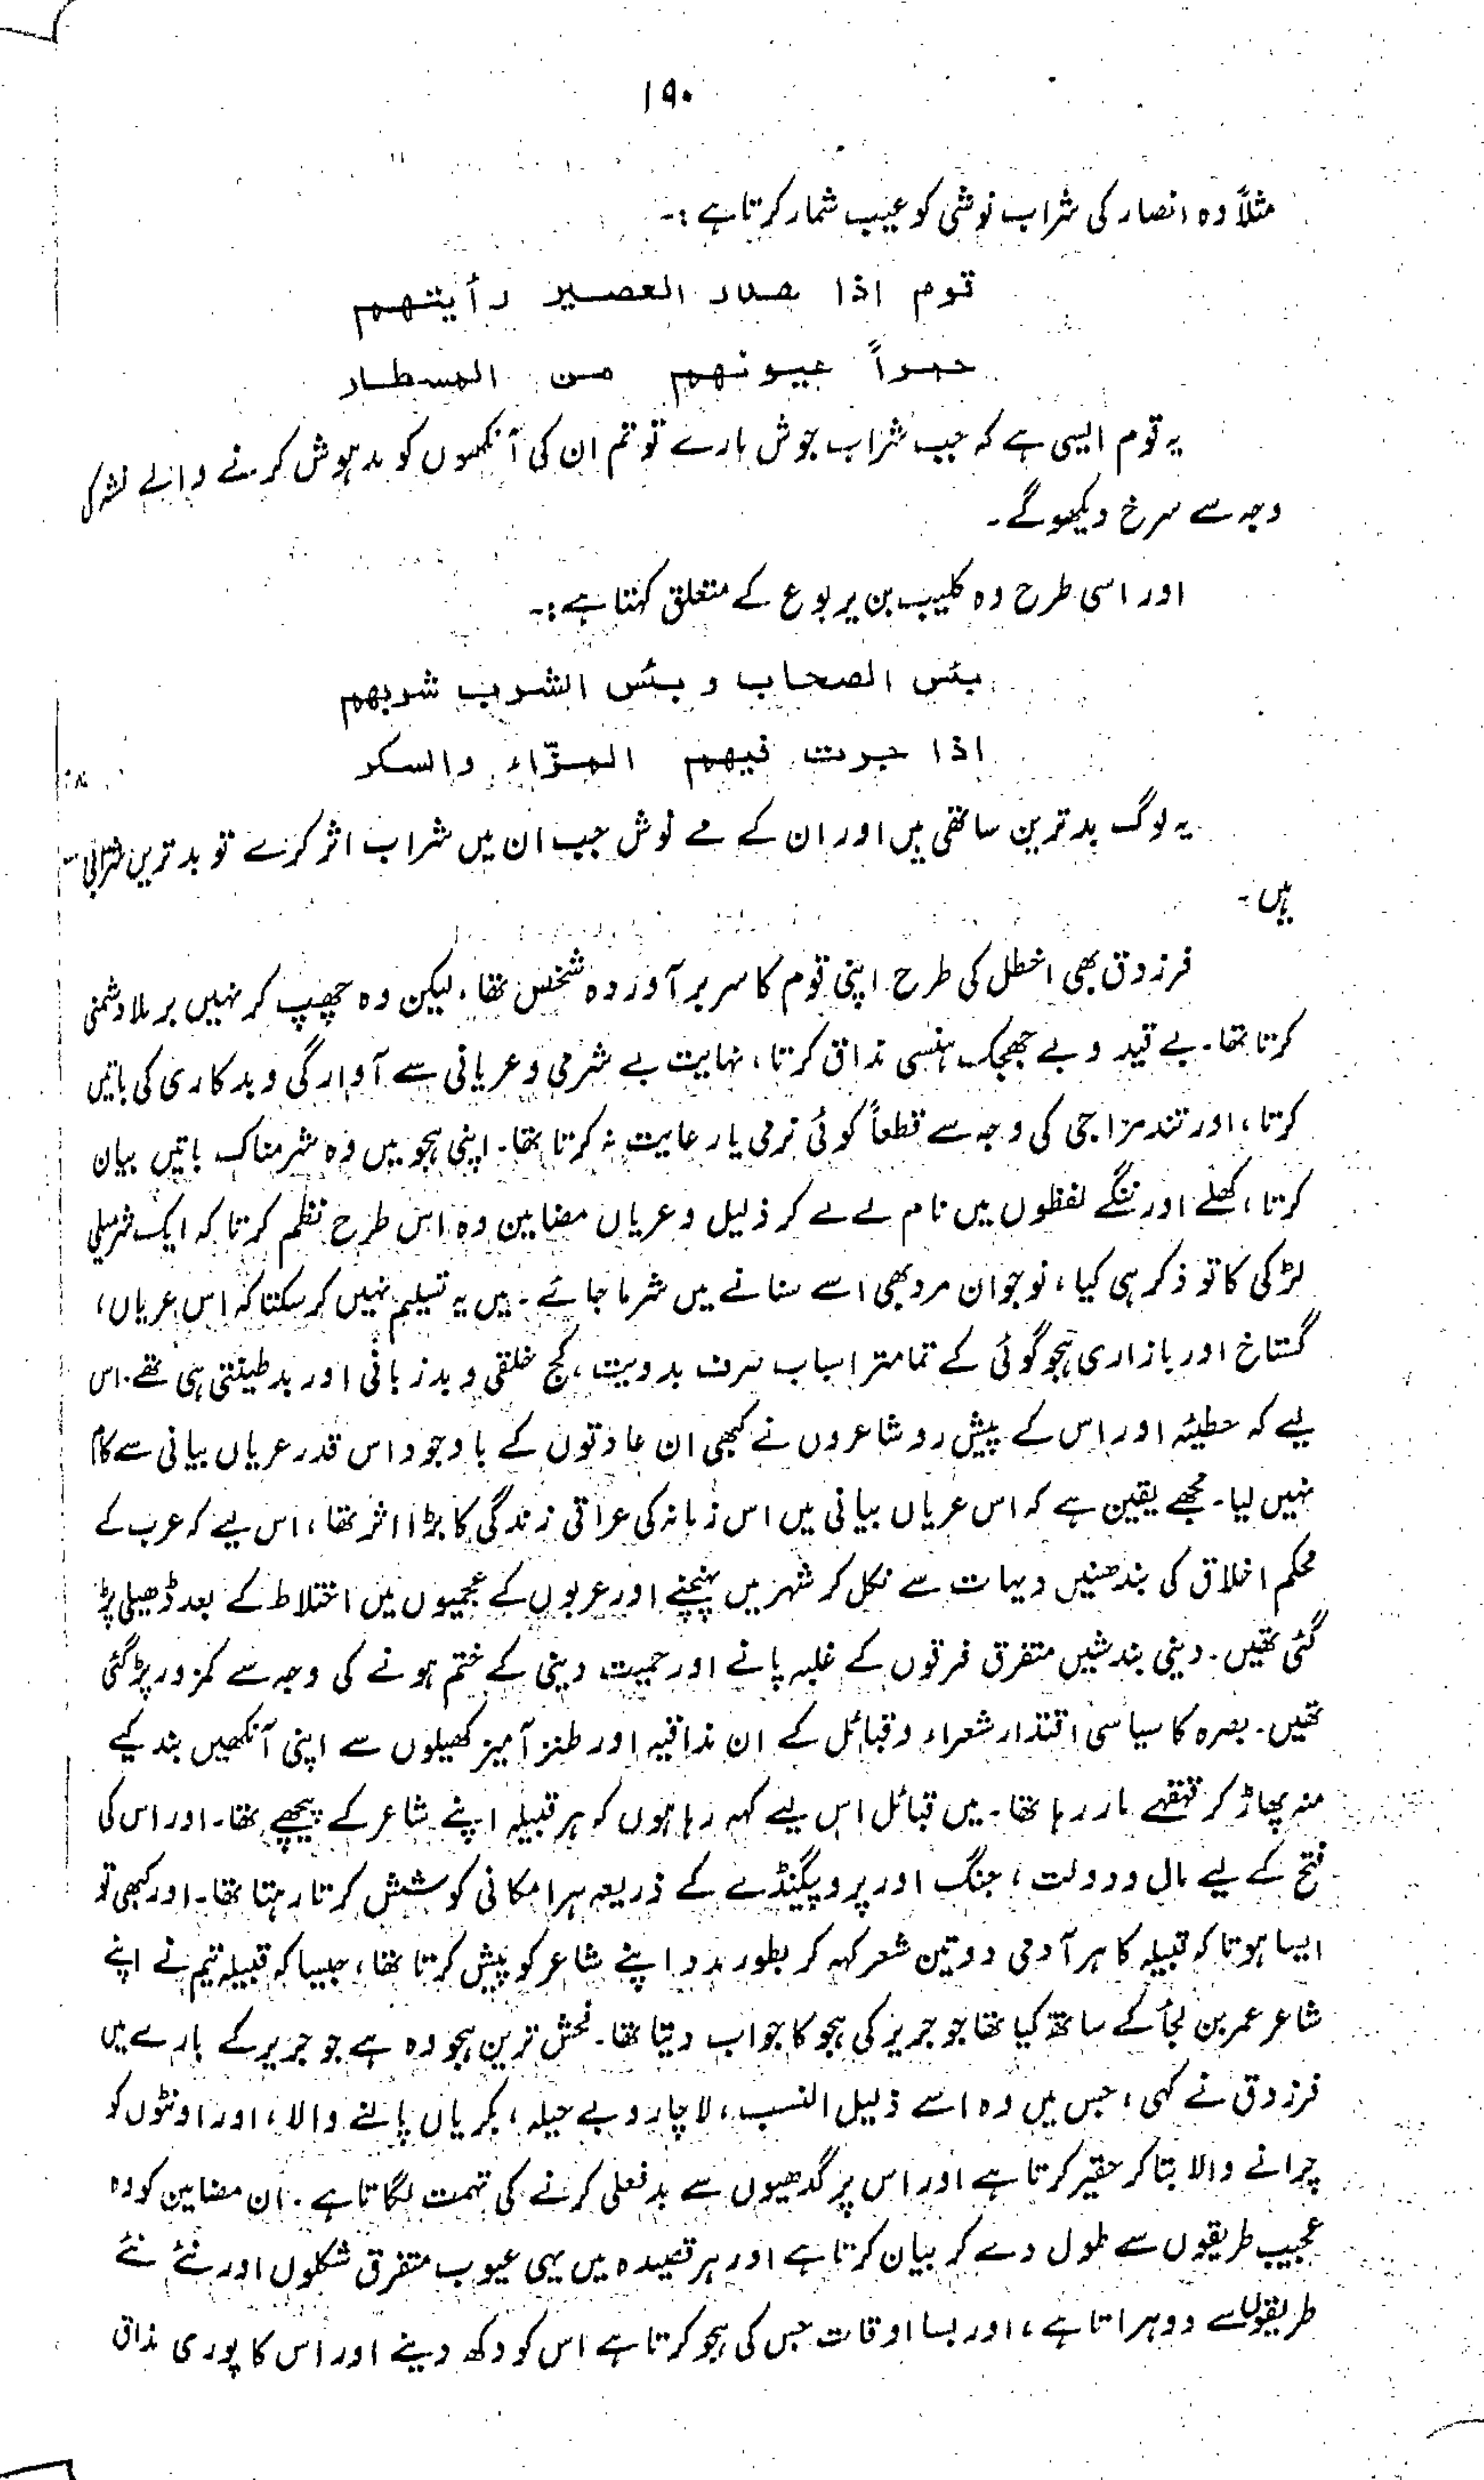 ۱۹۰
مثلاً وہ انصار کی شراب نوشی کو عیب شمار کرتا ہے :-
قوم اذا هدر العصير رأيتهم
حمراً عيونهم من المسطار
یہ قوم ایسی ہے کہ جب شراب جوش مارے تو تم ان کی آنکھوں کو مدہوش کرنے والے نشہ کی
وجہ سے سرخ دیکھو گے۔
اور اسی طرح وہ کلیب بن یربوع کے متعلق کہتا ہے :-
بئس الصحاب و بئس الشرب شربهم
اذا جرت فيهم المزّاء والسكر
یہ لوگ بدترین ساتھی ہیں اور ان کے مے نوش جب ان میں شراب اثر کرے تو بدترین شرابی
ہیں۔
فرزدق بھی اخطل کی طرح اپنی قوم کا سر بر آوردہ شخص تھا، لیکن وہ چھپ کر نہیں برملا دشمنی
کرتا تھا۔ بے قید و بے جھجک ہنسی مذاق کرتا، نہایت بے شرمی و عریانی سے آوارگی و بدکاری کی باتیں
کرتا، اور تند مزاجی کی وجہ سے قطعاً کوئی نرمی یا رعایت نہ کرتا تھا۔ اپنی ہجو میں وہ شرمناک باتیں بیان
کرتا، کھلے اور ننگے لفظوں میں نام لے لے کر ذلیل و عریاں مضامین وہ اس طرح نظم کرتا کہ ایک شرمیلی
لڑکی کا تو ذکر ہی کیا، نوجوان مرد بھی اسے سنانے میں شرما جائے۔ میں یہ تسلیم نہیں کر سکتا کہ اس عریاں،
گستاخ اور بازاری ہجو گوئی کے تمامتر اسباب صرف بدویت، کج خلقی و بدزبانی اور بدطینتی ہی تھے۔ اس
لیے کہ حطیئہ اور اس کے پیش رو شاعروں نے کبھی ان عادتوں کے باوجود اس قدر عریاں بیانی سے کام
نہیں لیا۔ مجھے یقین ہے کہ اس عریاں بیانی میں اس زمانہ کی عراقی زندگی کا بڑا اثر تھا، اس لیے کہ عرب کے
محکم اخلاق کی بندھنیں دیہات سے نکل کر شہر میں پہنچنے اور عربوں کے عجمیوں میں اختلاط کے بعد ڈھیلی پڑ
گئی تھیں۔ دینی بندشیں متفرق فرقوں کے غلبہ پانے اور حمیت دینی کے ختم ہونے کی وجہ سے کمزور پڑ گئی
تھیں۔ بصرہ کا سیاسی اقتدار شعراء و قبائل کے ان مذاقیہ اور طنز آمیز کھیلوں سے اپنی آنکھیں بند کیے
منہ پھاڑ کر قہقہے مار رہا تھا۔ میں قبائل اس لیے کہہ رہا ہوں کہ ہر قبیلہ اپنے شاعر کے پیچھے تھا۔ اور اس کی
فتح کے لیے مال و دولت، جنگ اور پروپیگنڈے کے ذریعہ ہر امکانی کوشش کرتا رہتا تھا۔ اور کبھی تو
ایسا ہوتا کہ قبیلہ کا ہر آدمی دو تین شعر کہہ کر بطور مدد اپنے شاعر کو پیش کرتا تھا، جیسا کہ قبیلہ تیم نے اپنے
شاعر عمر بن لجأ کے ساتھ کیا تھا جو جریر کی ہجو کا جواب دیتا تھا۔ فحش ترین ہجو وہ ہے جو جریر کے بارے میں
فرزدق نے کہی، جس میں وہ اسے ذلیل النسب، لاچار و بے حیلہ، بکریاں پالنے والا، اور اونٹوں کو
چرانے والا بتا کر حقیر کرتا ہے اور اس پر گدھیوں سے بدفعلی کرنے کی تہمت لگاتا ہے۔ ان مضامین کو وہ
عجیب طریقوں سے طول دے کر بیان کرتا ہے اور ہر قصیدہ میں یہی عیوب متفرق شکلوں اور نئے نئے
طریقوں سے دوہراتا ہے، اور بسا اوقات جس کی ہجو کرتا ہے اس کو دکھ دینے اور اس کا پوری مذاق